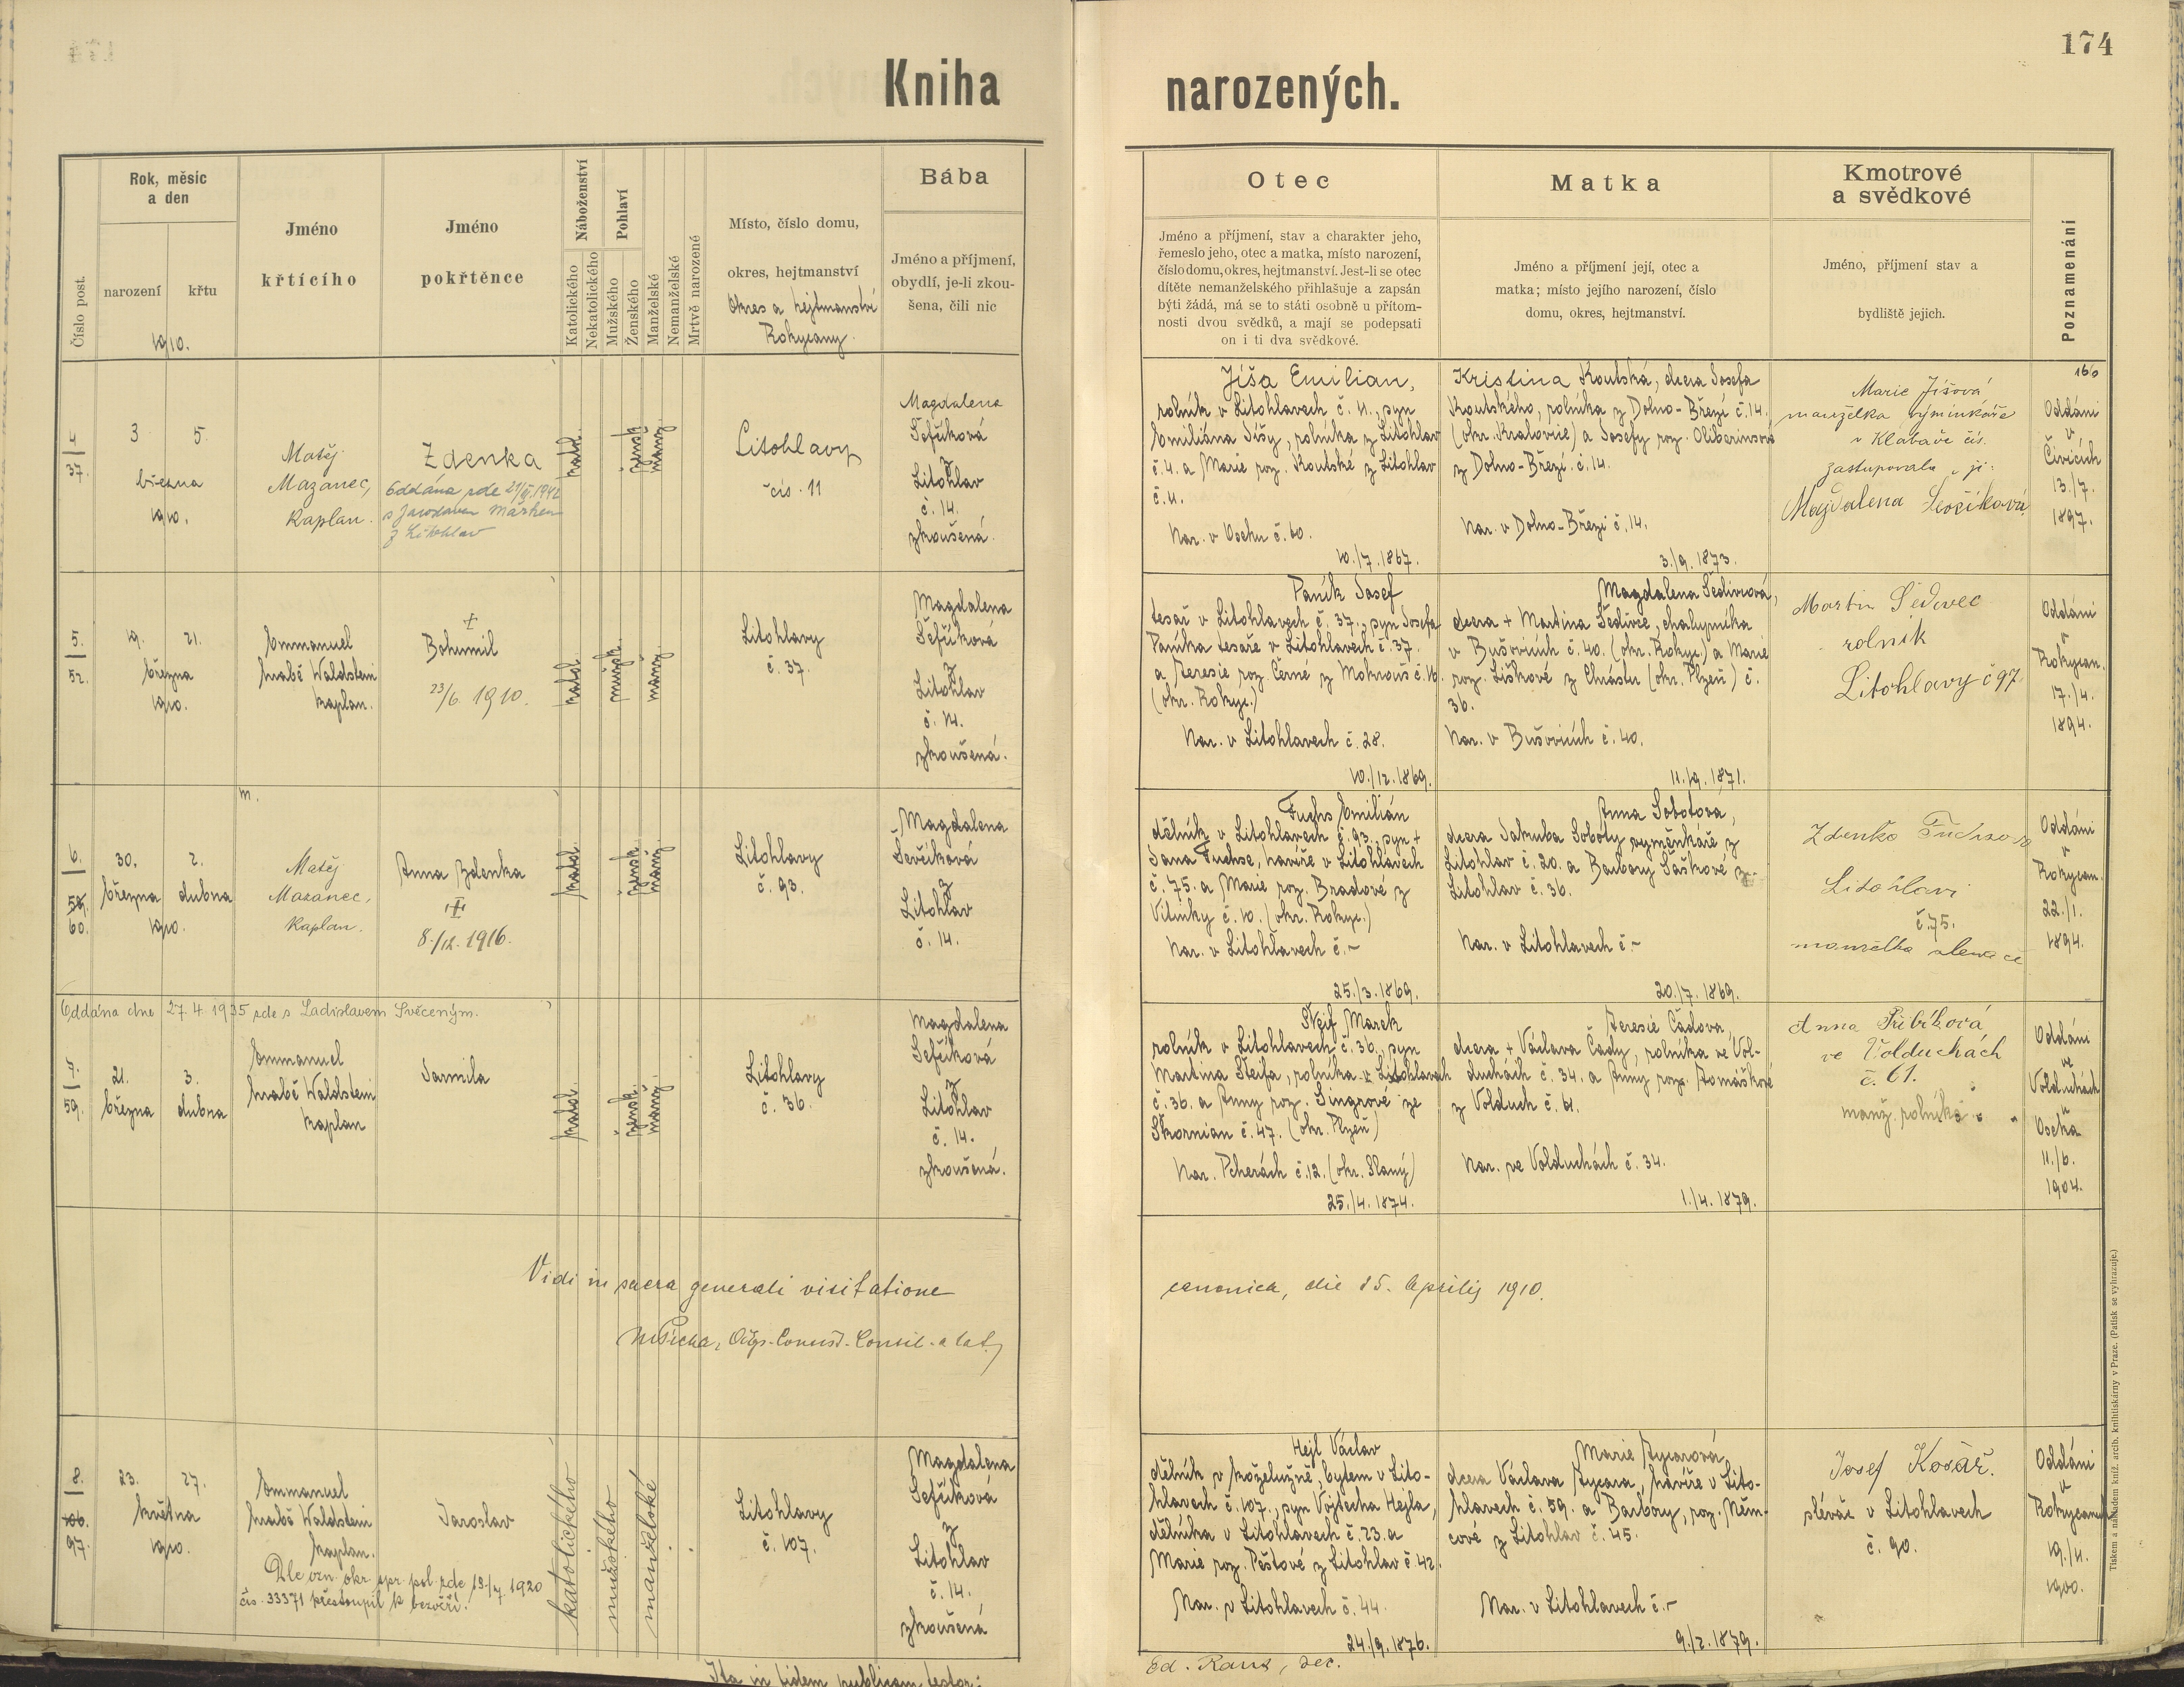 174
Kniha narozených.
Číslo post.
Rok, měsíc
a den
narození
křtu
1910.
Jméno
křtícího
Jméno
pokřtěnce
Náboženství
Katolického
Nekatolického
Pohlaví
Mužského
Ženského
Manželské
Nemanželské
Mrtvě narozené
Místo, číslo domu,
okres, hejtmanství
Okres a hejtmanství
Rokycany
Bába
Jméno a příjmení,
obydlí, je-li zkou-
šena, čili nic
Otec
Jméno a příjmení, stav a charakter jeho,
řemeslo jeho, otec a matka, místo narození,
číslo domu, okres, hejtmanství. Jest-li se otec
dítěte nemanželského přihlašuje a zapsán
býti žádá, má se to státi osobně u přítom-
nosti dvou svědků, a mají se podepsati
on i ti dva svědkové.
Matka
Jméno a příjmení její, otec a
matka; místo jejího narození, číslo
domu, okres, hejtmanství.
Kmotrové
a svědkové
Jméno, příjmení stav a
bydliště jejich.
Poznamenání
4
37.
3 5.
března
1910.
Matěj
Mazanec,
kaplan.
Zdenka
Oddána zde
z Litohlav
katol.
žensk.
manž.
Litohlavy
čís. 11
Magdalena
Ševčíková
z
Litohlav
č. 14.
zkoušená.
Jíša Emilian,
rolník v Litohlavech č. 11., syn
Emiliána Jíšy, rolníka z Litohlav
č. 4. a Marie roz. Koutské z Litohlav
č. 11.
Nar. v Oseku č. 60.
10./7. 1867.
Kristina Koutská, dcera Josefa
Koutského, rolníka z Dolno-Březí č. 14.
(okr. Kralovice) a Josefy roz.
z Dolno-Březí č. 14.
Nar. v Dolno-Březí č. 14.
3./9. 1873.
Marie Jíšová
manželka výminkáře
v Klabavě čís.
zastupovala ji:
Magdalena Ševčíková
Oddáni
v
13./7.
1897.
5.
52.
19. 21.
března
1910.
Emmanuel
hrabě Waldstein
kaplan.
Bohumil
23/6. 1910.
katol.
mužsk.
manž.
Litohlavy
č. 37.
Magdalena
Ševčíková
z
Litohlav
č. 14.
zkoušená.
Paník Josef
tesař v Litohlavech č. 37., syn Josefa
Paníka tesaře v Litohlavech č. 37.
a Teresie roz. Černé z Mokrouš č. 16.
(okr. Rokyc.)
Nar. v Litohlavech č. 28.
10./12. 1869.
Magdalena Šedivcová,
dcera + Martina Šedivce, chalupníka
v Bušovicích č. 40. (okr. Rokyc.) a Marie
roz. Liškové z Chrástu (okr. Plzeň) č.
36.
Nar. v Bušovicích č. 40.
11./9. 1871.
Martin Šedivec
rolník
Litohlavy č 97
Oddáni
v
Rokycan.
17./4.
1894.
6.
59.
60.
30. 2.
března dubna
1910.
m.
Matěj
Mazanec,
kaplan.
Anna Zdenka
8./12. 1916.
katol.
žensk.
manž.
Litohlavy
č. 93.
Magdalena
Ševčíková
z
Litohlav
č. 14.
Fuchs Emilián
dělník v Litohlavech č. 93., syn +
Jana Fuchse, havíře v Litohlavech
č. 75. a Marie roz. Bradové z
Vitinky č. 10. (okr. Rokyc.)
Nar. v Litohlavech č. -
25./3. 1869.
Anna Sobotová,
dcera Jakuba Soboty výměnkáře z
Litohlav č. 20. a Barbory Šaškové z
Litohlav č. 36.
Nar. v Litohlavech č. -
20./7. 1869.
Zdenka Fuchsova
Litohlavi
č. 75.
manželka slevače
Oddáni
v
Rokycan.
22./1.
1894.
Oddána dne 27. 4. 1935 zde s Ladislavem Svěceným.
7.
59.
21. 3.
března dubna
Emmanuel
hrabě Waldstein
kaplan
Jarmila
katol.
žensk.
manž.
Litohlavy
č. 36.
Magdalena
Ševčíková
z
Litohlav
č. 14.
zkoušená.
Štejf Marek
rolník v Litohlavech č. 36., syn
Martina Štejfa, rolníka v Litohlavech
č. 36. a Anny roz. Singrové ze
Škornian č. 47. (okr. Plzeň)
Nar. Pcherách č. 12. (okr. Slaný)
25./4. 1874.
Teresie Čadova,
dcera + Václava Čady, rolníka ve Vol-
duchách č. 34. a Anny roz. Tomáškové
z Volduch č. 61.
Nar. ve Volduchách č. 34.
1./4. 1879.
Anna Přibíková
ve Volduchách
č. 61.
manž. rolníka
Oddáni
ve
Volduchách
u
Oseka
11./6.
1904.
Vidi in sacra generali visitatione canonica, die 15. Aprilis 1910.
8.
106.
97.
23. 27.
května
1910.
Emmanuel
hrabě Waldstein
kaplan.
Jaroslav
Dle ozn. okr. spr. pol. zde 19./7. 1920
čís. 33371 přestoupil k bezvěří.
katolického
mužského
manželské
Litohlavy
č. 107.
Magdalena
Ševčíková
z
Litohlav
č. 14.
zkoušená
Hejl Václav
dělník v koželužně, bytem v Lito-
hlavech č. 107., syn Vojtěcha Hejla,
dělníka v Litohlavech č. 23. a
Marie roz. Peštové z Litohlav č. 42.
Nar. v Litohlavech č. 44.
24./9. 1876.
Marie Rycarová,
dcera Václava Rycara, havíře v Lito-
hlavech č. 59. a Barbory, roz. Něm-
cové z Litohlav č. 45.
Nar. v Litohlavech č. -
9./2. 1879.
Josef Kosář.
slévač v Litohlavech
č. 90.
Oddáni
v
Rokycanech
19./11.
1900.
Ita in fidem publicam testor:
Tiskem a nákladem kníž. arcib. knihtiskárny v Praze. (Patisk se vyhrazuje.)